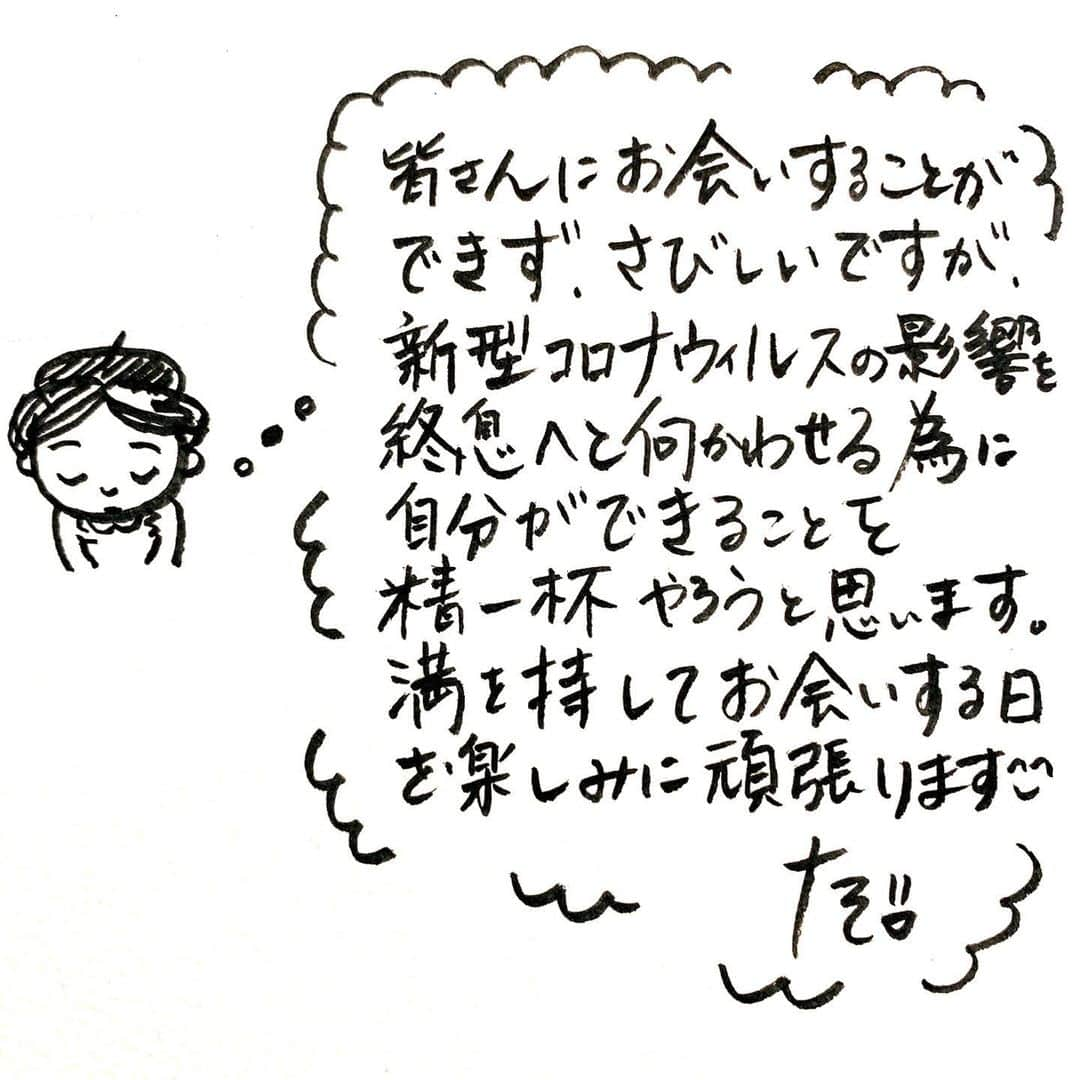 皆さんにお会いすることが
できず、さびしいですが、
新型コロナウィルスの影響を
終息へと何かわせる為に
自分ができることを
精一杯やろうと思います。
満を持してお会いする日
を楽しみに頑張ります^^